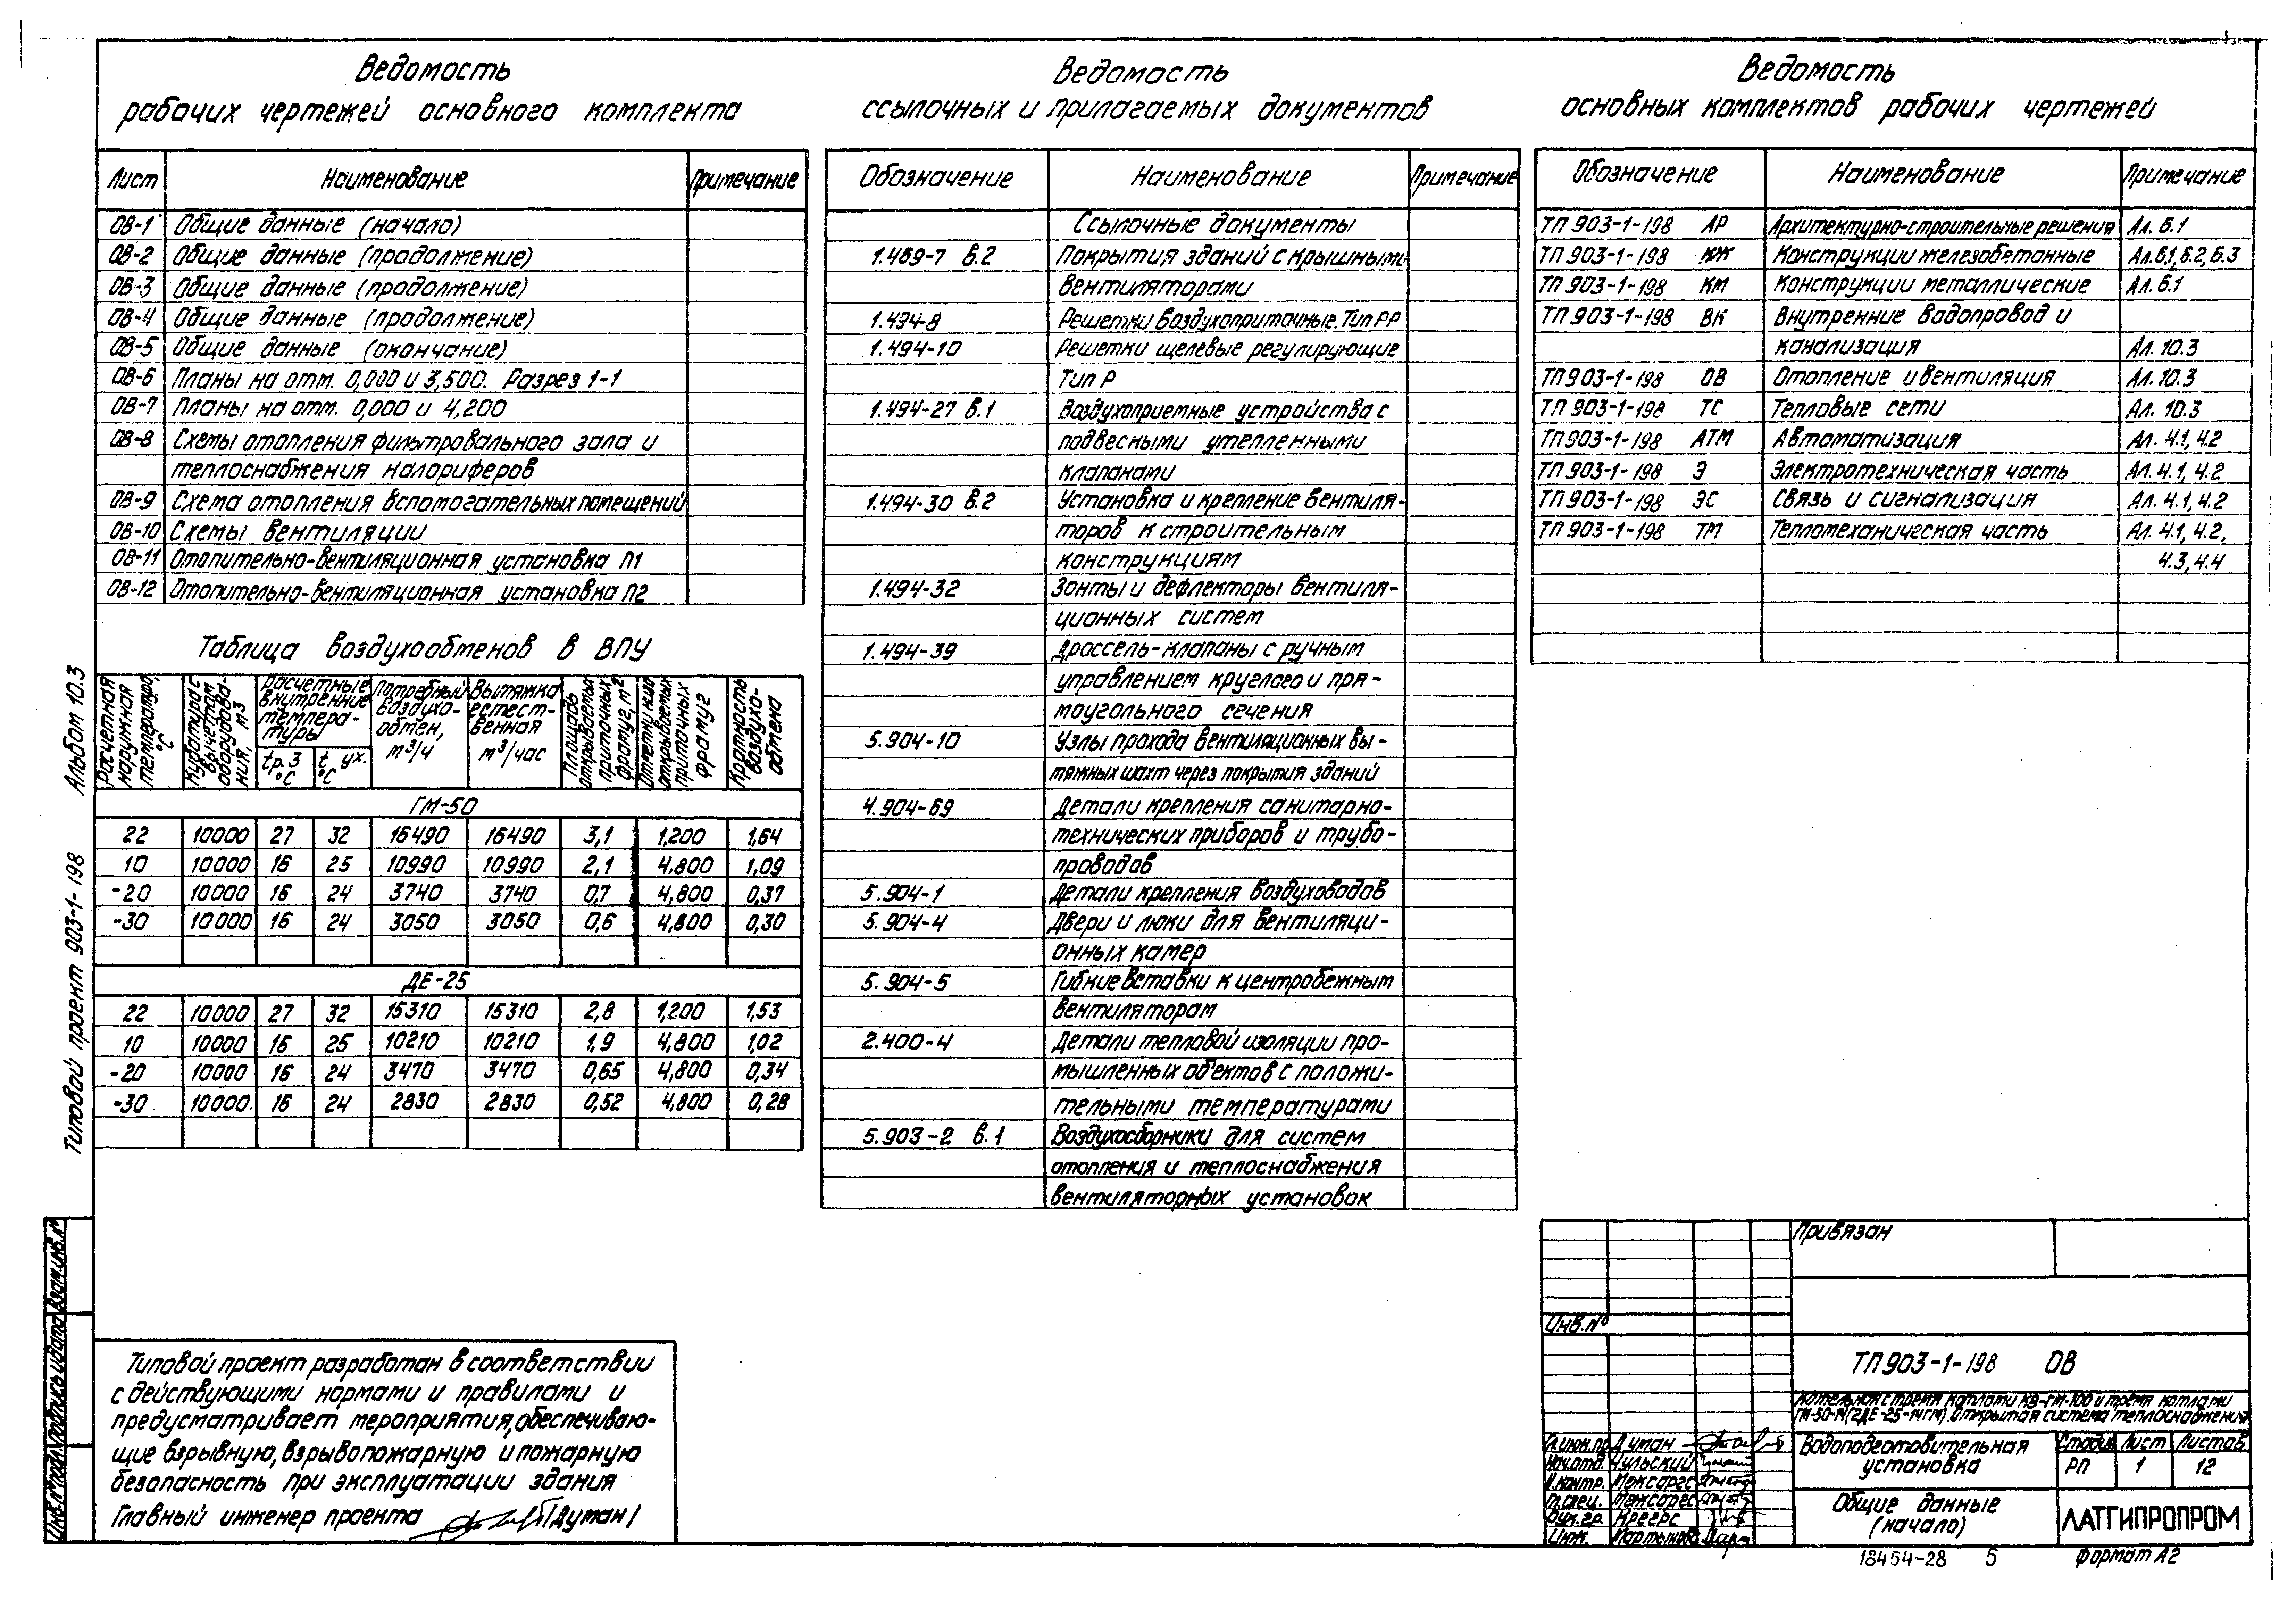 Ведомость
рабочих чертежей основного комплекта
Лист Наименование Примечание
ОВ-1 Общие данные (начало)
ОВ-2 Общие данные (продолжение)
ОВ-3 Общие данные (продолжение)
ОВ-4 Общие данные (продолжение)
ОВ-5 Общие данные (окончание)
ОВ-6 Планы на отм. 0,000 и 3,500. Разрез 1-1
ОВ-7 Планы на отм. 0,000 и 4,200
ОВ-8 Схемы отопления фильтровального зала и
теплоснабжения калориферов
ОВ-9 Схема отопления вспомогательных помещений
ОВ-10 Схемы вентиляции
ОВ-11 Отопительно-вентиляционная установка П1
ОВ-12 Отопительно-вентиляционная установка П2
Таблица воздухообменов в ВПУ
Расчетная наружная температура, °С
Кубатура с вычетом оборудования, м3
Расчетные внутренние температуры
tр.з °С
t ух. °С
Потребный воздухообмен, м³/ч
Вытяжка естественная м³/час
Площадь открываемых приточных фрамуг, м²
Отметки низа открываемых приточных фрамуг
Кратность воздухообмена
ГМ-50
22 10000 27 32 16490 16490 3,1 1,200 1,64
10 10000 16 25 10990 10990 2,1 4,800 1,09
-20 10000 16 24 3740 3740 0,7 4,800 0,37
-30 10000 16 24 3050 3050 0,6 4,800 0,30
ДЕ-25
22 10000 27 32 15310 15310 2,8 1,200 1,53
10 10000 16 25 10210 10210 1,9 4,800 1,02
-20 10000 16 24 3470 3470 0,65 4,800 0,34
-30 10000 16 24 2830 2830 0,52 4,800 0,28
Ведомость
ссылочных и прилагаемых документов
Обозначение Наименование Примечание
Ссылочные документы
1.469-7 в.2 Покрытия зданий с крышными
вентиляторами
1.494-8 Решетки воздухоприточные. Тип РР
1.494-10 Решетки щелевые регулирующие
Тип Р
1.494-27 в.1 Воздухоприемные устройства с
подвесными утепленными
клапанами
1.494-30 в.2 Установка и крепление вентиля-
торов к строительным
конструкциям
1.494-32 Зонты и дефлекторы вентиля-
ционных систем
1.494-39 Дроссель-клапаны с ручным
управлением круглого и пря-
моугольного сечения
5.904-10 Узлы прохода вентиляционных вы-
тяжных шахт через покрытия зданий
4.904-69 Детали крепления санитарно-
технических приборов и трубо-
проводов
5.904-1 Детали крепления воздуховодов
5.904-4 Двери и люки для вентиляци-
онных камер
5.904-5 Гибкие вставки к центробежным
вентиляторам
2.400-4 Детали тепловой изоляции про-
мышленных объектов с положи-
тельными температурами
5.903-2 в.1 Воздухосборники для систем
отопления и теплоснабжения
вентиляторных установок
Ведомость
основных комплектов рабочих чертежей
Обозначение Наименование Примечание
ТП 903-1-198 АР Архитектурно-строительные решения Ал. 6.1
ТП 903-1-198 КЖ Конструкции железобетонные Ал.6.1, 6.2, 6.3
ТП 903-1-198 КМ Конструкции металлические Ал. 6.1
ТП 903-1-198 ВК Внутренние водопровод и
канализация Ал. 10.3
ТП 903-1-198 ОВ Отопление и вентиляция Ал. 10.3
ТП 903-1-198 ТС Тепловые сети Ал. 10.3
ТП 903-1-198 АТМ Автоматизация Ал. 4.1, 4.2
ТП 903-1-198 Э Электротехническая часть Ал. 4.1, 4.2
ТП 903-1-198 ЭС Связь и сигнализация Ал. 4.1, 4.2
ТП 903-1-198 ТМ Тепломеханическая часть Ал. 4.1, 4.2,
4.3, 4.4
Типовой проект 903-1-198 Альбом 10.3
Инв.№подл. Подпись и дата Взам.инв.№
Типовой проект разработан в соответствии
с действующими нормами и правилами и
предусматривает мероприятия, обеспечиваю-
щие взрывную, взрывопожарную и пожарную
безопасность при эксплуатации здания
Главный инженер проекта /Думан/
Привязан
Инв.№
ТП 903-1-198 ОВ
Котельная с тремя котлами КВ-ГМ-100 и тремя котлами
ГМ-50-14 (2ДЕ-25-14ГМ). Открытая система теплоснабжения
Гл.инж.пр. Думан
Нач.отд. Чульский
Н.контр. Межсарес
Гл.спец. Межсарес
Рук.гр. Креерс
Инж. Мартынова
Водоподготовительная
установка
Стадия Лист Листов
РП 1 12
Общие данные
(начало)
ЛАТГИПРОПРОМ
18454-28 5 Формат А2